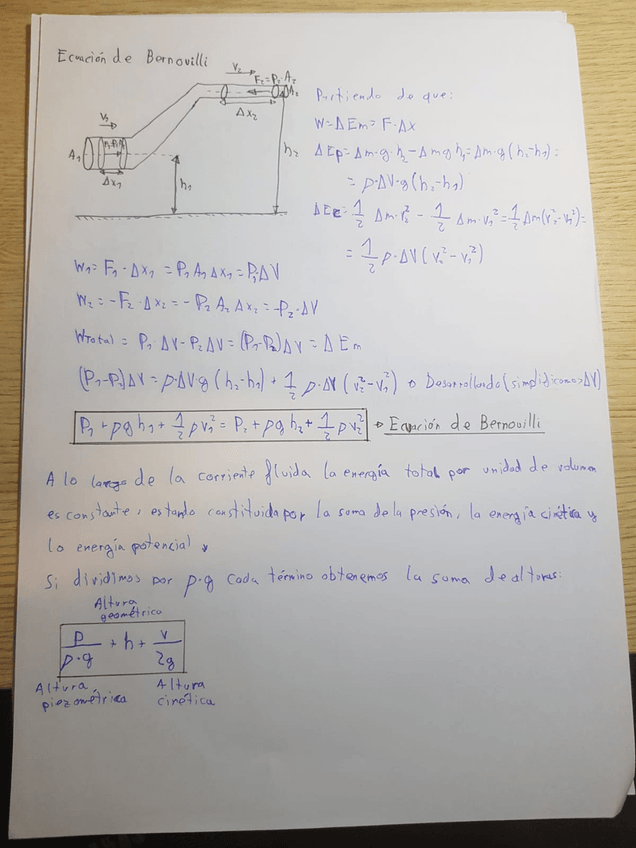 Ecuación de Bernouilli
V₂
F₂=P₂·A₂
A₂
Δx₂
V₁
A₁
Δx₁
h₁
h₂
Partiendo de que:
W=ΔEm=F·Δx
ΔEp=Δm·g·h₂-Δm·g·h₁=Δm·g(h₂-h₁)=
=ρ·ΔV·g(h₂-h₁)
ΔEc=1/2 Δm·v₂²-1/2 Δm·v₁²=1/2 Δm(v₂²-v₁²)=
=1/2 ρ·ΔV(v₂²-v₁²)
W₁=F₁·Δx₁=P₁A₁Δx₁=P₁ΔV
W₂=-F₂·Δx₂=-P₂A₂Δx₂=-P₂·ΔV
WTotal=P₁·ΔV-P₂ΔV=(P₁-P₂)ΔV=ΔEm
(P₁-P₂)ΔV=ρ·ΔV·g(h₂-h₁)+1/2 ρ·ΔV(v₂²-v₁²) → Desarrollando(simplificamos ΔV)
P₁+ρgh₁+1/2 ρv₁²=P₂+ρgh₂+1/2 ρv₂² → Ecuación de Bernouilli
A lo largo de la corriente fluida la energía total por unidad de volumen
es constante, estando constituida por la suma de la presión, la energía cinética y
la energía potencial
Si dividimos por ρ·g cada término obtenemos la suma de alturas:
Altura
geométrica
P/ρ·g + h + v/2g
Altura
piezométrica
Altura
cinética